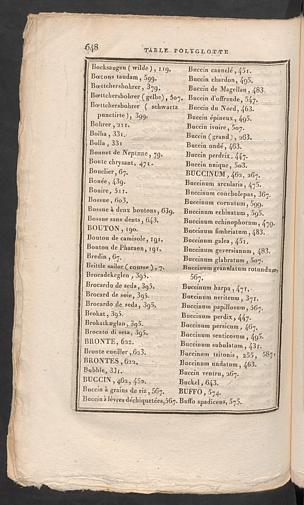 648
TABLE POLYGLOTTE
Bocksaugen (wilde), 119.
Bocons taudam, 599.
Boettchersbohrer, 379.
Boettchersbohrer (gelbe), 507.
Boettchersbohrer ( schwartz
punctirte), 399.
Bohrer, 211.
Bolha, 331.
Bolla, 331
Bonnet de Neptune, 79.
Bonte chrysant, 471.
Bouclier, 67.
Bouée, 439.
Bouire, 511.
Bossue, 603.
Bossue à deux boutons, 639.
Bossue sans dents, 643.
BOUTON, 190.
Bouton de camisole, 191.
Bouton de Pharaon, 191.
Bredin, 67.
Brittle sailor (course), 7.
Brocadekeglen, 395.
Brocardo de seda, 395.
Brocard de soie, 395.
Brocardo de seda, 395.
Brokat, 395.
Brokatkuglan, 395.
Brocato di seta, 395.
BRONTE, 622.
Bronte cueiller, 623.
BRONTES, 622.
Bubble, 331.
BUCCIN, 462, 450.
Buccin à grains de riz, 567.
Buccin à lèvres déchiquetées, 567.
Buccin cannelé, 451.
Buccin chardon, 495.
Buccin de Magellan, 483.
Buccin d'offrande, 547.
Buccin du Nord, 463.
Buccin épineux, 495.
Buccin ivoire, 507.
Buccin (grand), 263.
Buccin ondé, 463.
Buccin perdrix, 447.
Buccin unique, 503.
BUCCINUM, 462, 267.
Buccinum arcularia, 475.
Buccinum concholepas, 367.
Buccinum cornutum, 599.
Buccinum echinatum, 595.
Buccinum echinophorum, 479.
Buccinum fimbriatum, 483.
Buccinum galea, 451.
Buccinum geversianum, 483.
Buccinum glabratum, 507.
Buccinum granulatum rotundum,
567.
Buccinum harpa, 471.
Buccinum neritoum, 371.
Buccinum papillosum, 567.
Buccinum perdix, 447.
Buccinum persicum, 467.
Buccinum senticosum, 495.
Buccinum subulatum, 431.
Buccinum tritonis, 255, 587.
Buccinum undatum, 463.
Buccin ventru, 267.
Buckel, 643.
BUFFO, 574.
Buffo spadiceus, 575.